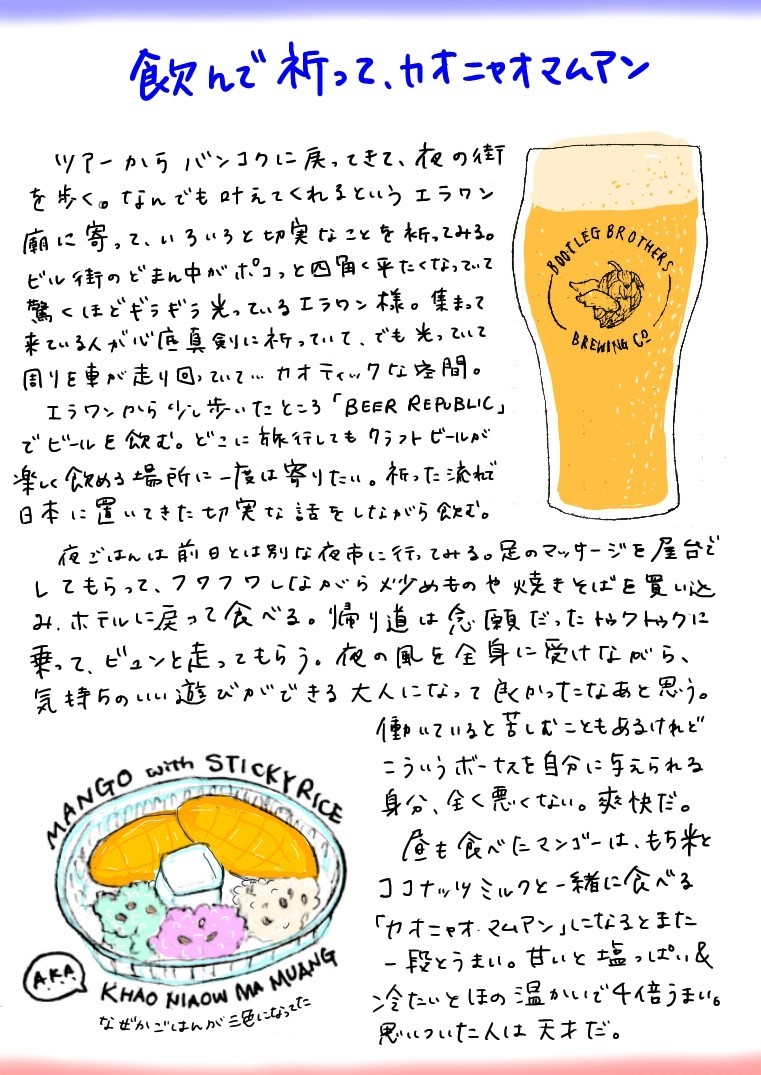 飲んで祈って、カオニャオマムアン
ツアーからバンコクに戻ってきて、夜の街
を歩く。なんでも叶えてくれるというエラワン
廟に寄って、いろいろと切実なことを祈ってみる。
ビル街のどまん中がポコっと四角く平たくなっていて
驚くほどギラギラ光っているエラワン様。集まって
来ている人が心底真剣に祈っていて、でも光っていて
周りを車が走り回っていて…カオティックな空間。
エラワンから少し歩いたところ「BEER REPUBLIC」
でビールを飲む。どこに旅行してもクラフトビールが
楽しく飲める場所に一度は寄りたい。祈った流れで
日本に置いてきた切実な話をしながら飲む。
BOOTLEG BROTHERS
BREWING CO
夜ごはんは前日とは別な夜市に行ってみる。足のマッサージを屋台で
してもらって、フワフワしながら炒めものや焼きそばを買い込
み、ホテルに戻って食べる。帰り道は念願だったトゥクトゥクに
乗って、ビュンと走ってもらう。夜の風を全身に受けながら、
気持ちのいい遊びができる大人になって良かったなあと思う。
働いていると苦しむこともあるけれど
こういうボーナスを自分に与えられる
身分、全く悪くない。爽快だ。
昼も食べたマンゴーは、もち米と
ココナッツミルクと一緒に食べる
「カオニャオマムアン」になるとまた
一段とうまい。甘いと塩っぱい&
冷たいとほの温かいで4倍うまい。
思いついた人は天才だ。
MANGO with STICKY RICE
A.K.A
KHAO NIAOW MA MUANG
なぜかごはんが三色になってた